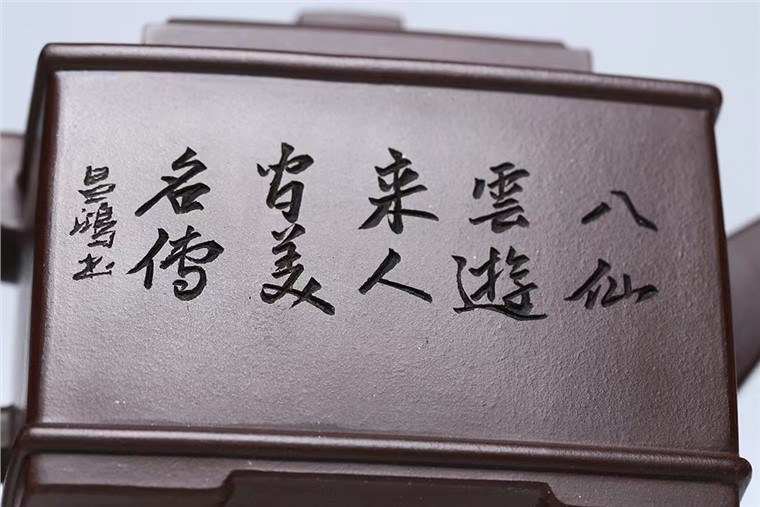 八仙
雲遊
来人
美
名傳
昌鴻书